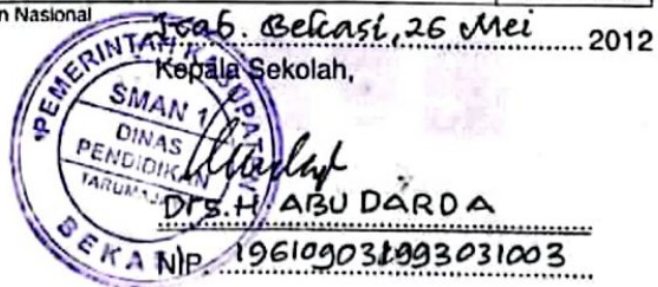 n Nasional
Kab. Bekasi, 26 Mei 2012
Kepala Sekolah,
PEMERINTAH KABUPATEN
BEKASI
SMAN 1
DINAS
PENDIDIKAN
TARUMAJAYA
Drs. H. ABU DARDA
NIP. 196109031993031003